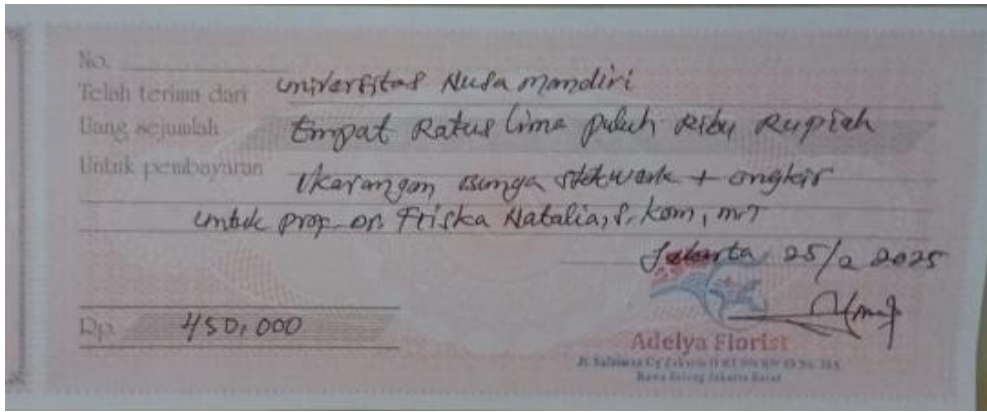 No.
Telah terima dari Universitas Nusa Mandiri
Uang sejumlah Empat Ratus lima puluh Ribu Rupiah
Untuk pembayaran 1karangan Bunga + ongkir
untuk prof. Dr. Friska Natalia, S. Kom, M.T
Jakarta, 25/2 2025
Rp. 450,000
Adelya Florist
Rawa Belong Jakarta Barat